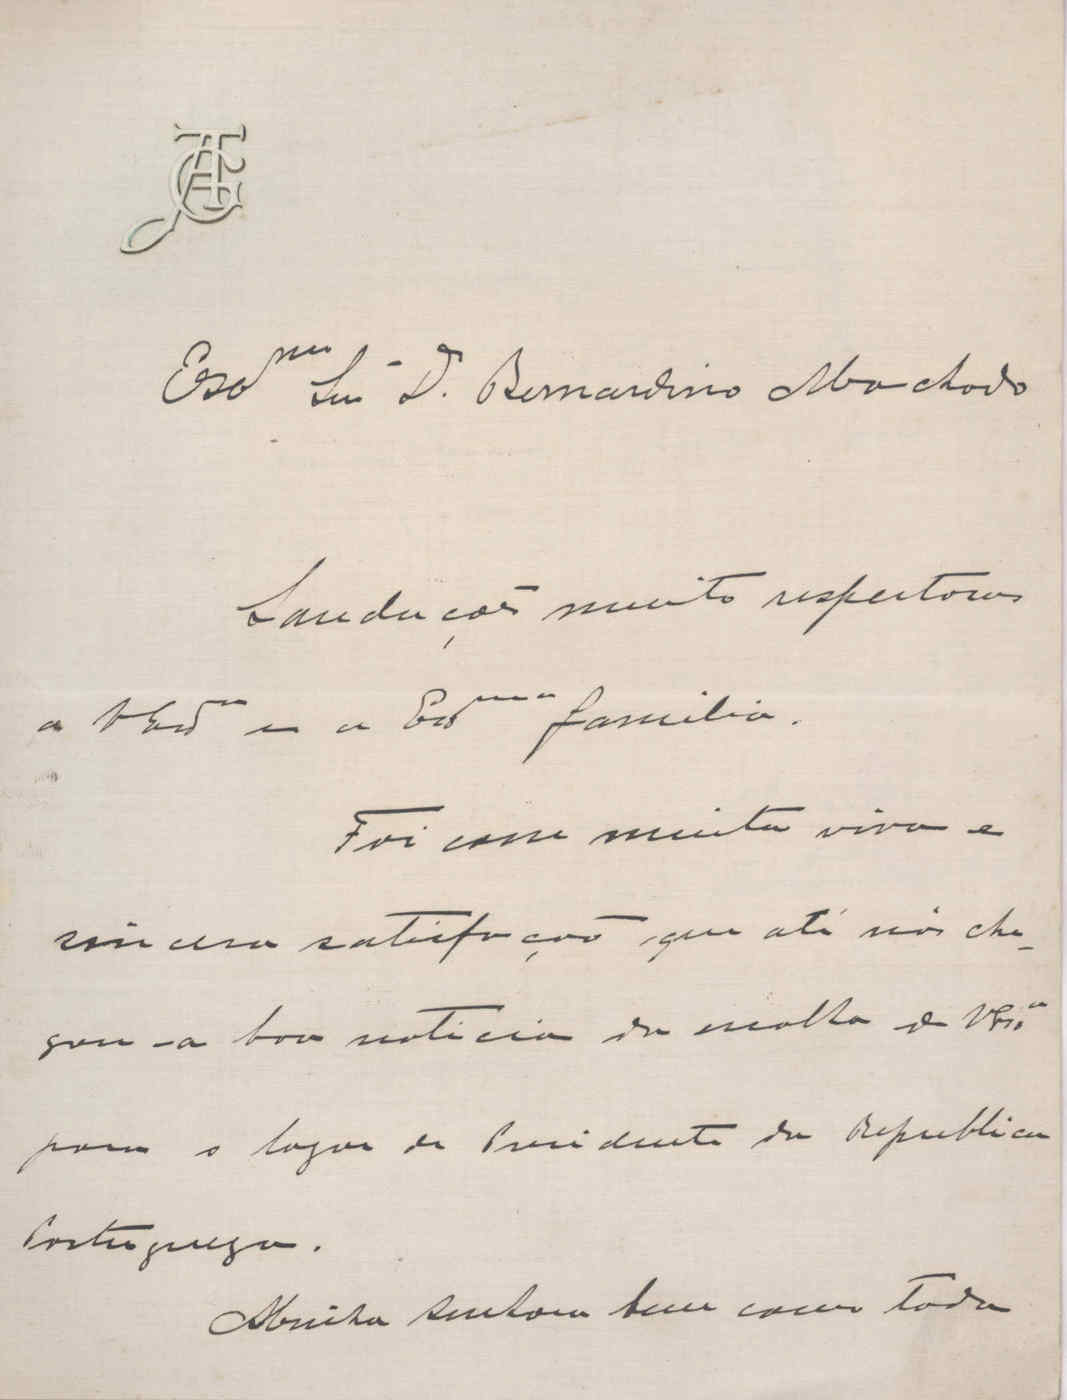 Exmo Snr D. Bernardino Machado
Saudações muito respeitosas
a VExa e a Exma familia.
Foi com muita viva e
sincera satisfação que até nós che-
gou a boa noticia da escolha de VExa
para o logar de Presidente da Republica
Portugueza.
Minha senhora bem como toda